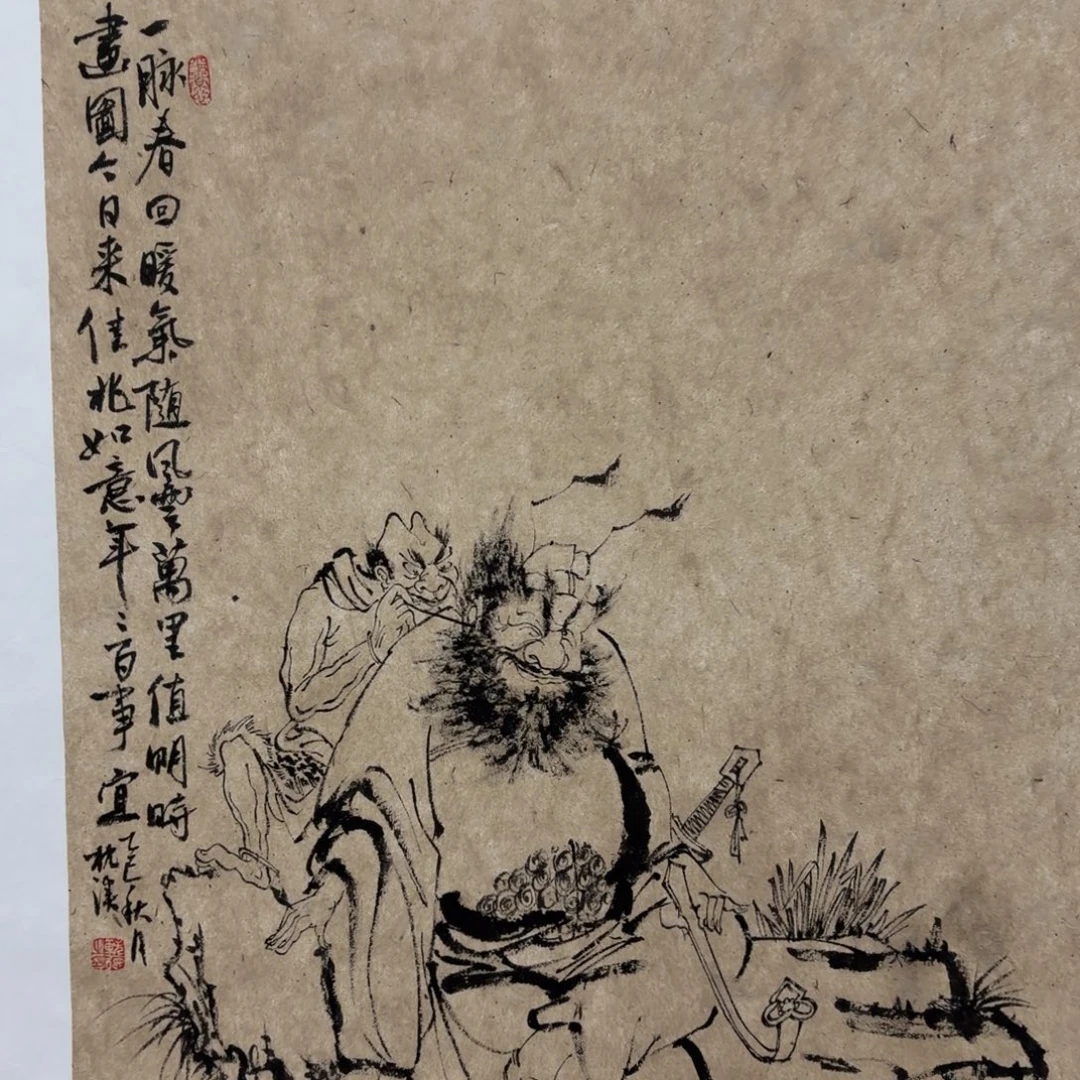 一脉春回暖氣随風雲萬里值明時
畫圖今日来佳兆如意年〻百事宜
乙巳秋月
枕溪